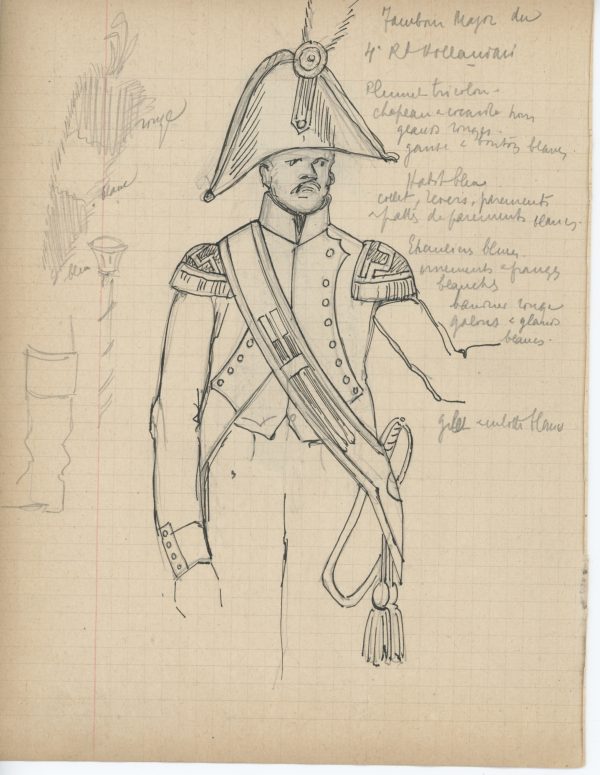 Tambour Major du
4e Rt Hollandais
Plumet tricolore
chapeau cocarde
glands rouges
ganse & bouton blancs.
Habit bleu
collet, revers, parements
pattes de parements blancs.
Epaulettes bleues
ornements & franges
blanches
banderole rouge
galons & glands
blancs.
gilet culotte blancs
rouge
blanc
bleu